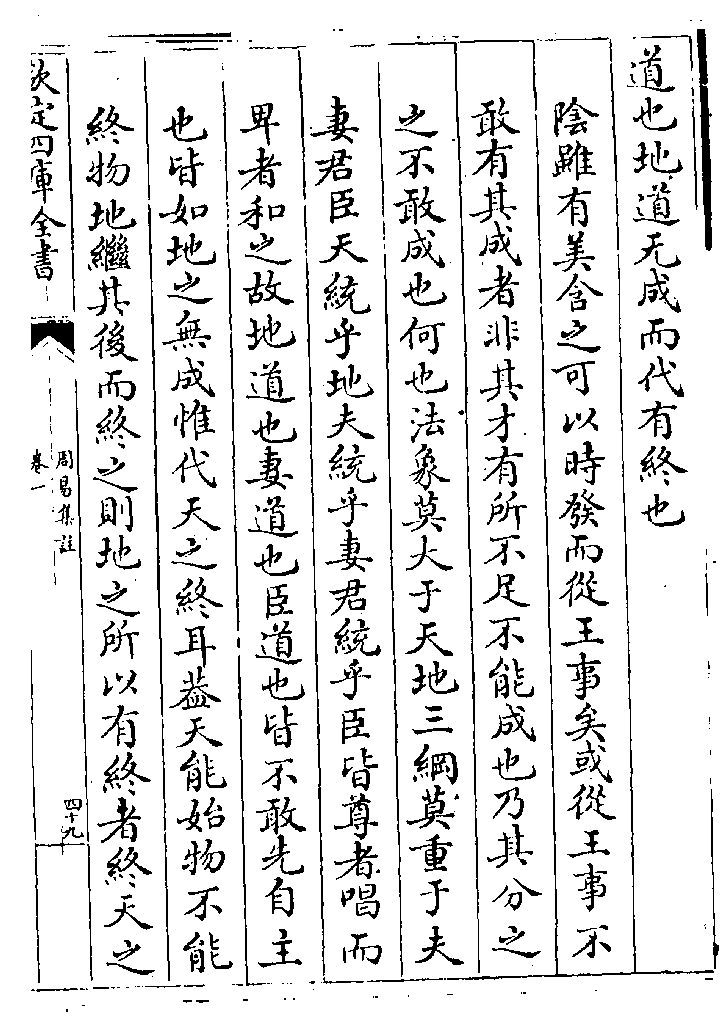 道也地道无成而代有終也
陰雖有美含之可以時發而從王事矣或從王事不
敢有其成者非其才有所不足不能成也乃其分之
之不敢成也何也法象莫大于天地三綱莫重于夫
妻君臣天統乎地夫統乎妻君統乎臣皆尊者唱而
卑者和之故地道也妻道也臣道也皆不敢先自主
也皆如地之無成惟代天之終耳葢天能始物不能
終物地繼其後而終之則地之所以有終者終天之
欽定四庫全書
周易集註
卷一
四十九